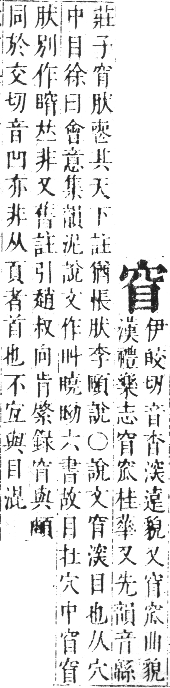 窅
伊皎切音杳深遠貌又窅窊曲貌
漢禮樂志窅窊桂華又先韻音緜
莊子窅肰喪其天下註猶悵肰李頤說〇說文窅深目也从穴
中目徐曰會意集韻泥說文作叫曉呦六書故目在穴中窅窅
肰別作𠀤非又舊註引趙叔向肯綮錄窅與
同於交切音凹亦非从頁者首也不宜與目混